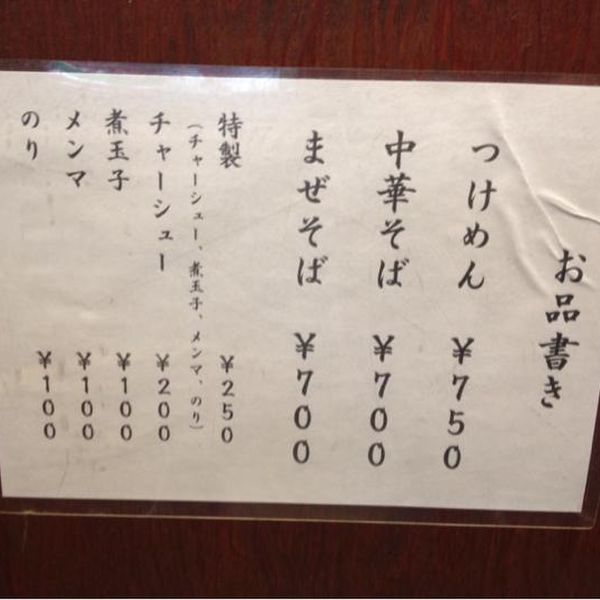 お品書き
つけめん ￥750
中華そば ￥700
まぜそば ￥700
特製 ￥250
（チャーシュー、煮玉子、メンマ、のり）
チャーシュー ￥200
煮玉子 ￥100
メンマ ￥100
のり ￥100